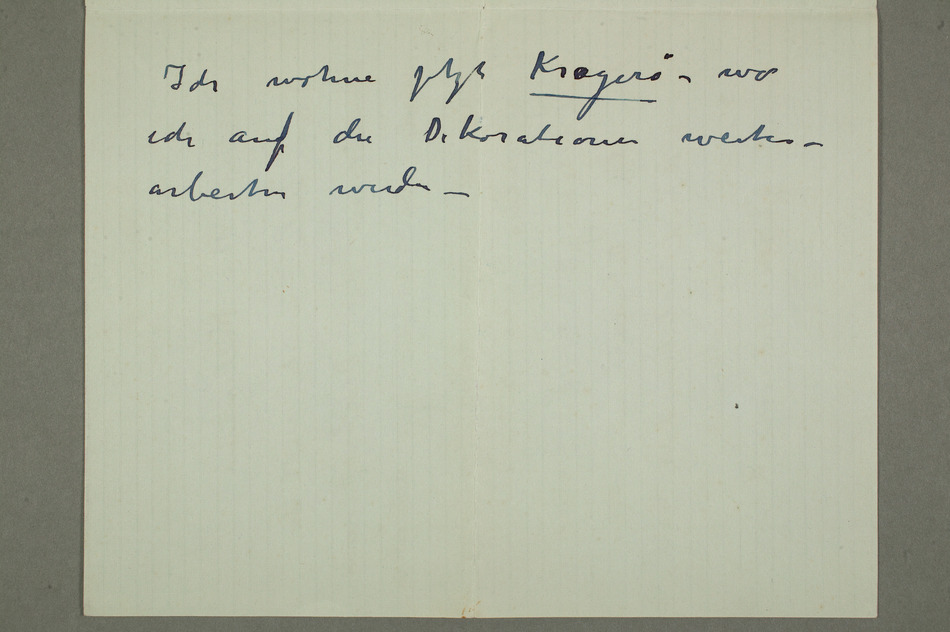 Ich wohne jetzt Kragerö – wo
ich auf die Dekorationen weiter –
arbeiten werde –